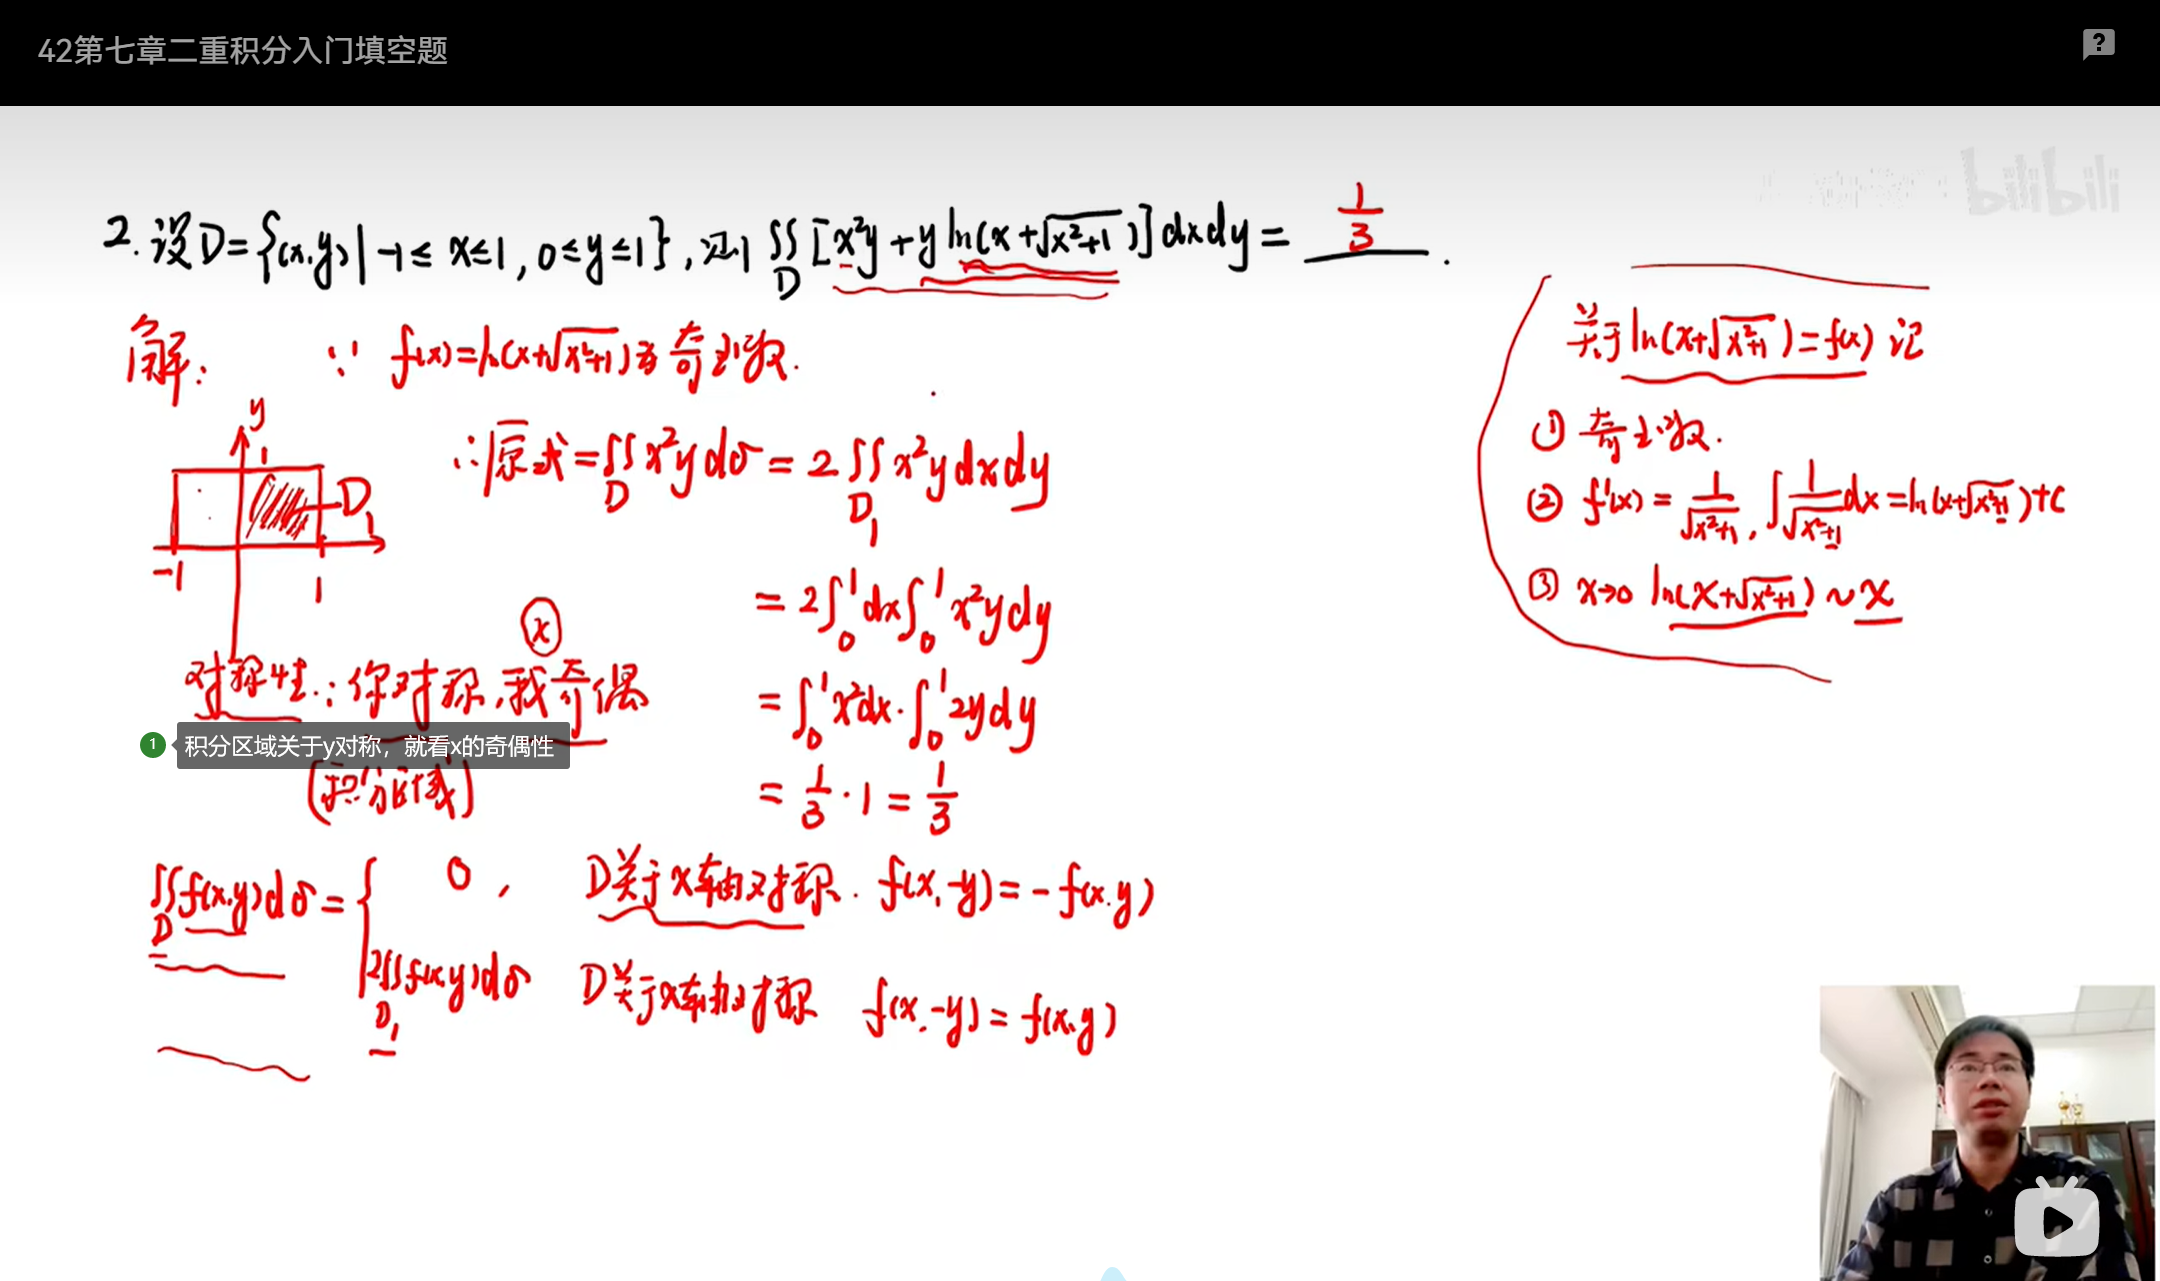 42第七章二重积分入门填空题
bilibili
2. 设D={(x,y)|-1≤x≤1,0≤y≤1},则∬_D[x²y+yln(x+√(x²+1))]dxdy= 1/3 .
解: ∵ f(x)=ln(x+√(x²+1))为奇函数.
∴原式=∬_D x²ydσ=2∬_{D₁}x²ydxdy
y
1
D₁
-1 1
=2∫₀¹dx∫₀¹x²ydy
=∫₀¹x²dx·∫₀¹2ydy
=1/3·1=1/3
x
对称性:你对称,我奇偶
1 积分区域关于y对称，就看x的奇偶性
(积分区域)
∬_D f(x,y)dσ={ 0, D关于x轴对称. f(x,-y)=-f(x,y)
2∬_{D₁}f(x,y)dσ D关于x轴对称 f(x,-y)=f(x,y)
关于ln(x+√(x²+1))=f(x) 记
① 奇函数.
② f'(x)=1/√(x²+1), ∫1/√(x²+1)dx=ln(x+√(x²+1))+C
③ x→0 ln(x+√(x²+1))~x